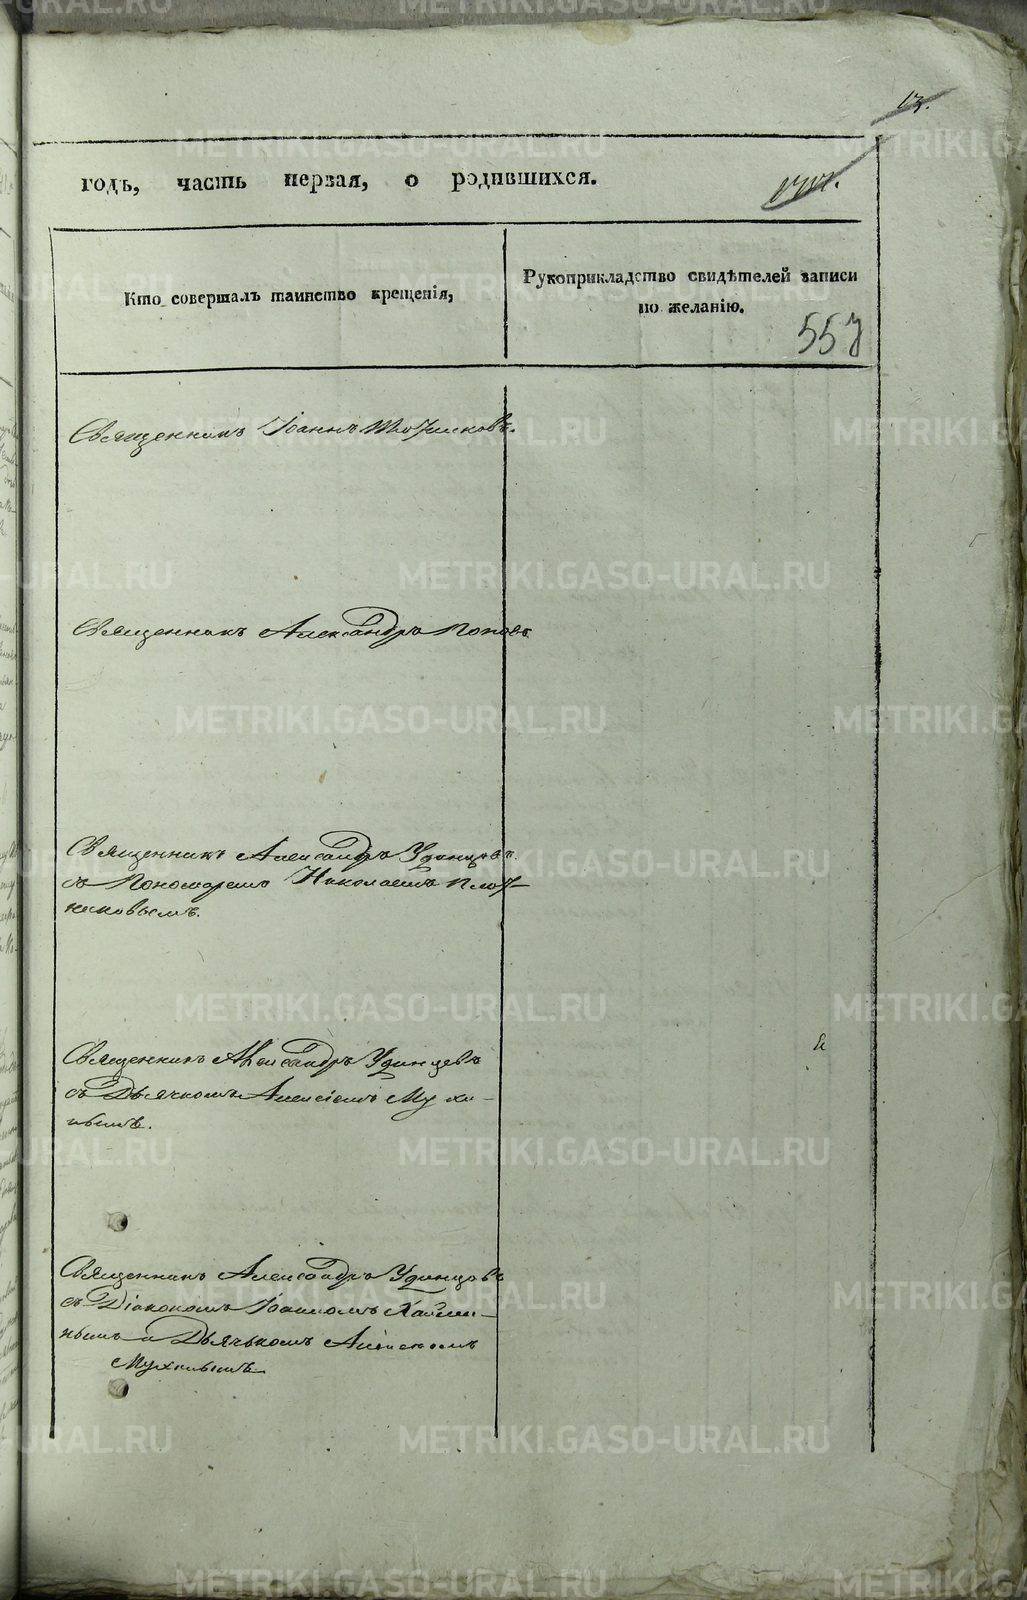 годъ, часть первая, о родившихся.
Кто совершалъ таинство крещенія,
Рукоприкладство свидѣтелей записи
по желанію.
557
Священникъ Іоаннъ
Священникъ Александръ Поповъ
Священникъ Александръ Удинцовъ
съ Пономаремъ Николаемъ Плот-
никовымъ.
Священникъ Александръ Удинцевъ
съ Дьячкомъ Алексіемъ Мухи-
нымъ.
Священникъ Александръ Удинцовъ
съ Діакономъ Іоанномъ
нымъ и Дьячькомъ Алексіемъ
Мухинымъ
METRIKI.GASO-URAL.RU